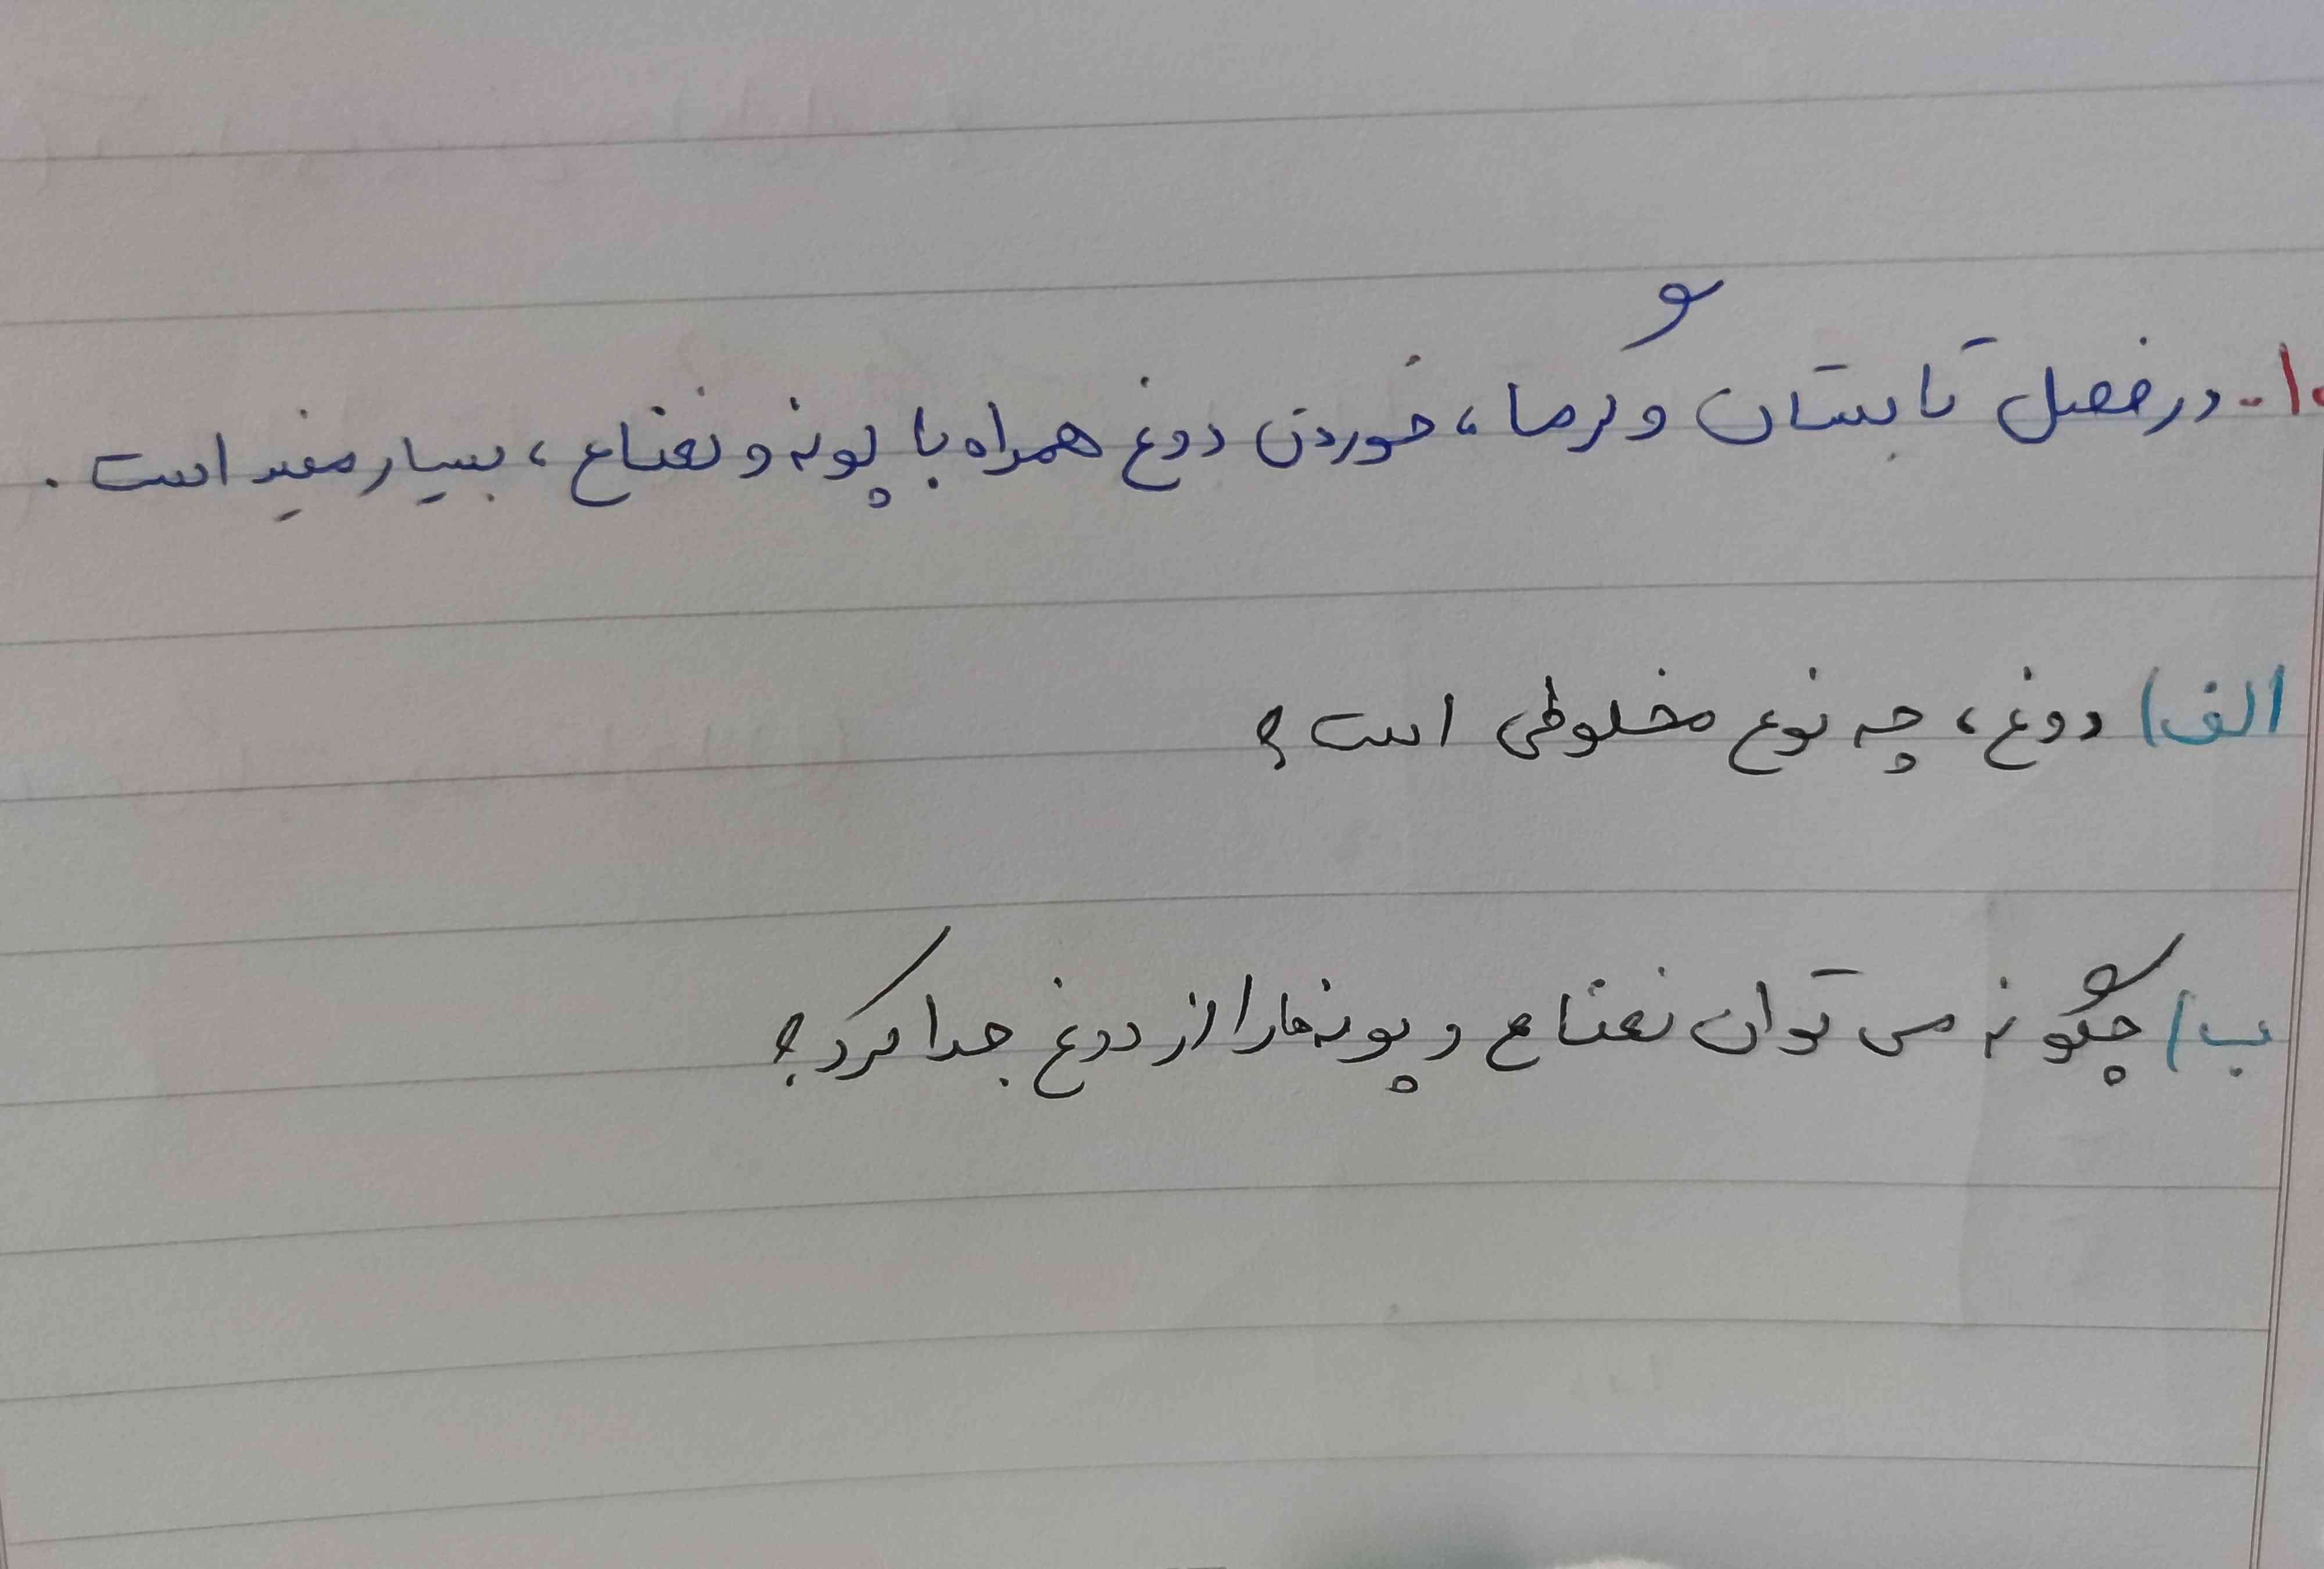 ۱۰- در فصل تابستان و گرما، خوردن دوغ همراه با پونه و نعناع، بسیار مفید است.
الف) دوغ، چه نوع مخلوطی است؟
ب) چگونه می توان نعناع و پونه‌ها را از دوغ جدا کرد؟